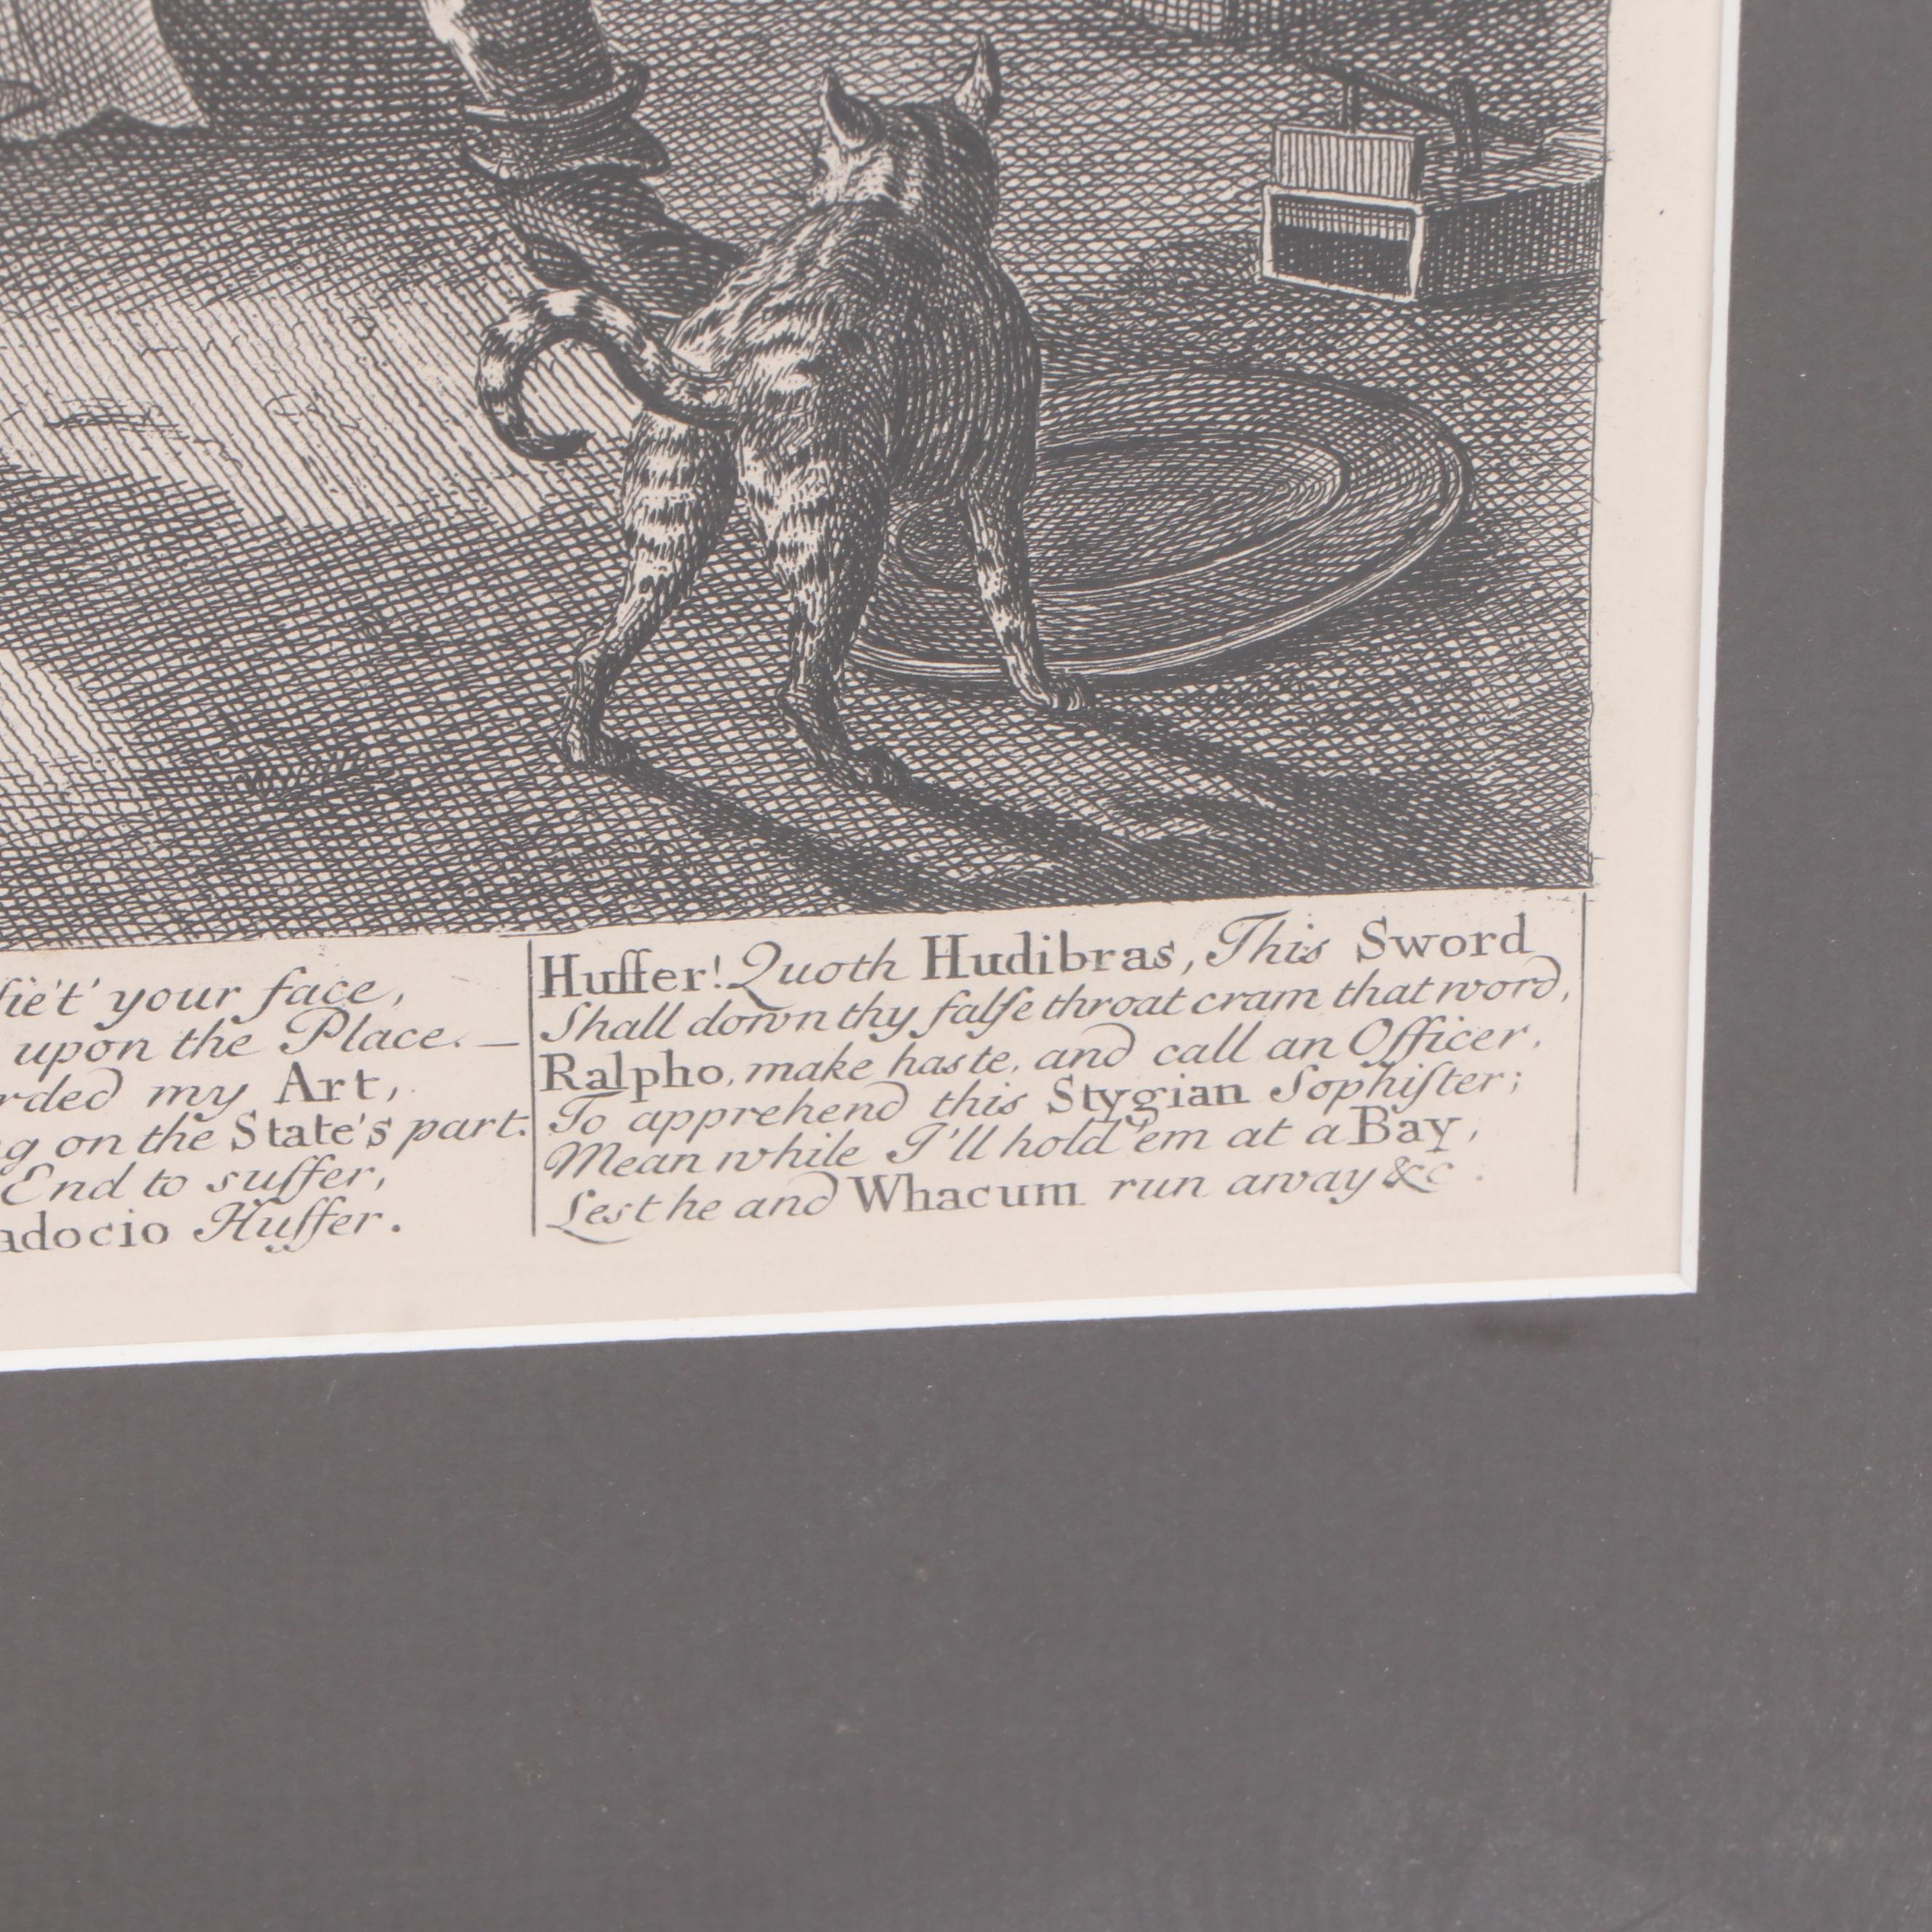 your face,
upon the Place. —
my Art,
on the State's part.
End to suffer,
Huffer.
Huffer! Quoth Hudibras, This Sword
Shall down thy falſe throat cram that word,
Ralpho, make haste, and call an Officer,
To apprehend this Stygian Sophiſter;
Mean while I'll hold 'em at a Bay,
Lest he and Whacum run away &c.